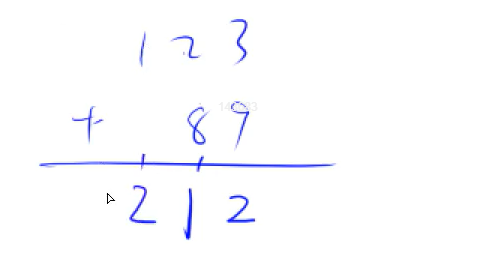 1 2 3
+ 8 9
2 1 2